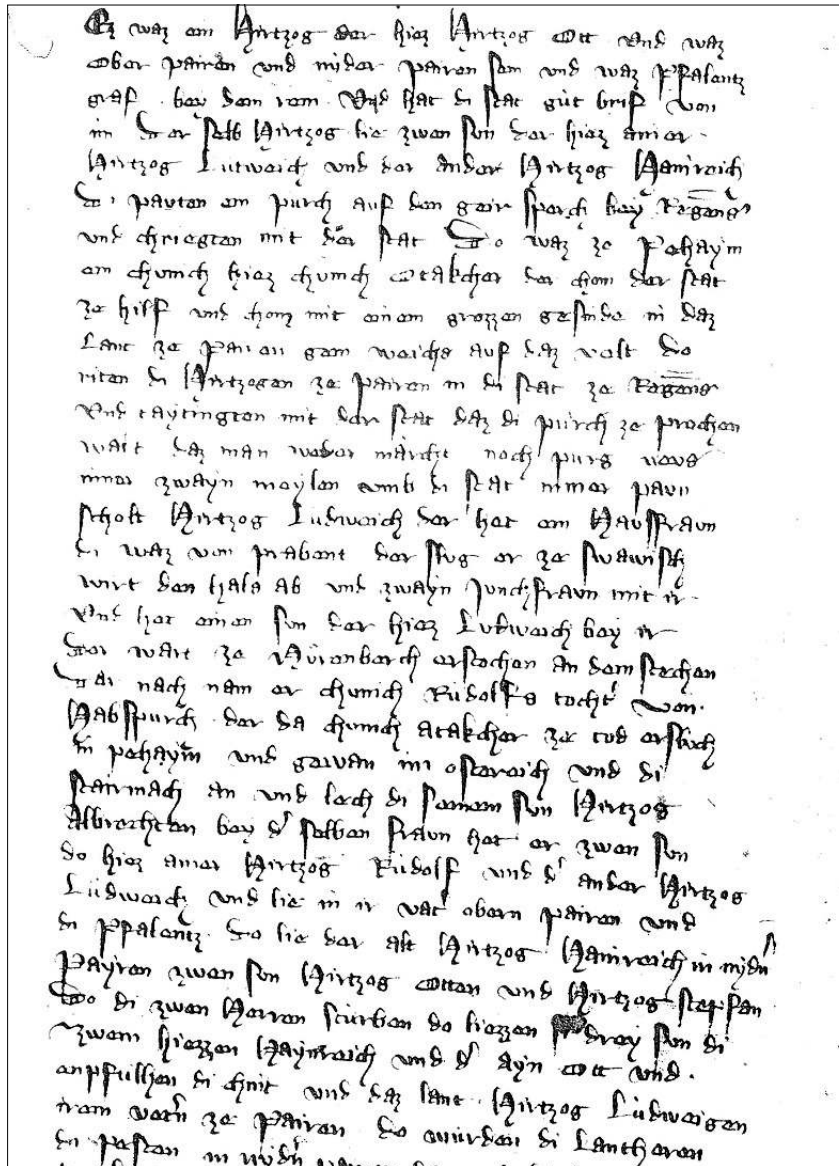 Ez waz ein Hirtzog der hiez Hirtzog Ott vnd waz
Ober pairen vnd nyder pairen sein vnd waz Pfalentz
graf bey dem rein Vnd hat di stat gut brif von
im Der selb Hirtzog lie zwen sun der hiez ainer
Hirtzog Lutweich vnd der ander Hirtzog Hainreich
Di pauten ein purch auf den geirsperch bey Regens
vnd chriegten mit der stat Do waz ze Pehaym
ein chunich hiez chunich Otakcher der chom der stat
ze hilf vnd chom mit einem grozzen gesinde in daz
Lant ze Pairen gein weichs auf daz velt Do
riten di Hirtzogen ze pairen in di stat ze Regens
Vnd taytingten mit der stat daz di purch ze prochen
wart daz man weder märcht noch purg
inner zwayn meylen vmb di stat nimer pavn
scholt Hirtzog Ludweich der het ein Hausfravn
di waz von prabant der slug er ze swäbisch
wirt den hals ab vnd zwayn Junchfravn mit ir
Vnd het einen sun der hiez Ludweich bey ir
Der wart ze Nürenberch erstochen an dem stechen
Dar nach nam er chunich Rudolfs tocht von
Habspurch der da chunich atakcher ze tod erslueh
in pehaym vnd gewan im ostereich vnd di
stairmarch an vnd lech di seinem sun Hirtzog
Albrechten bey d selben fravn het er zwen sun
do hiez ainer Hirtzog Rudolf vnd d ander Hirtzog
Ludweich vnd lie in ir vat obern pairen vnd
di Pfalentz Do lie der alt Hirtzog Hainreich in nydn
Payren zwen sun Hirtzog Otten vnd Hirtzog steffan
Do di zwen Herren sturben do liezzen si drey sun di
zwein hiezzen Haynreich vnd d ayn Ott vnd
enpfulhen di chint vnd daz lant Hirtzog Ludweigen
irem vetn ze Pairen do wurden di Lantheren
di pesten in nydn